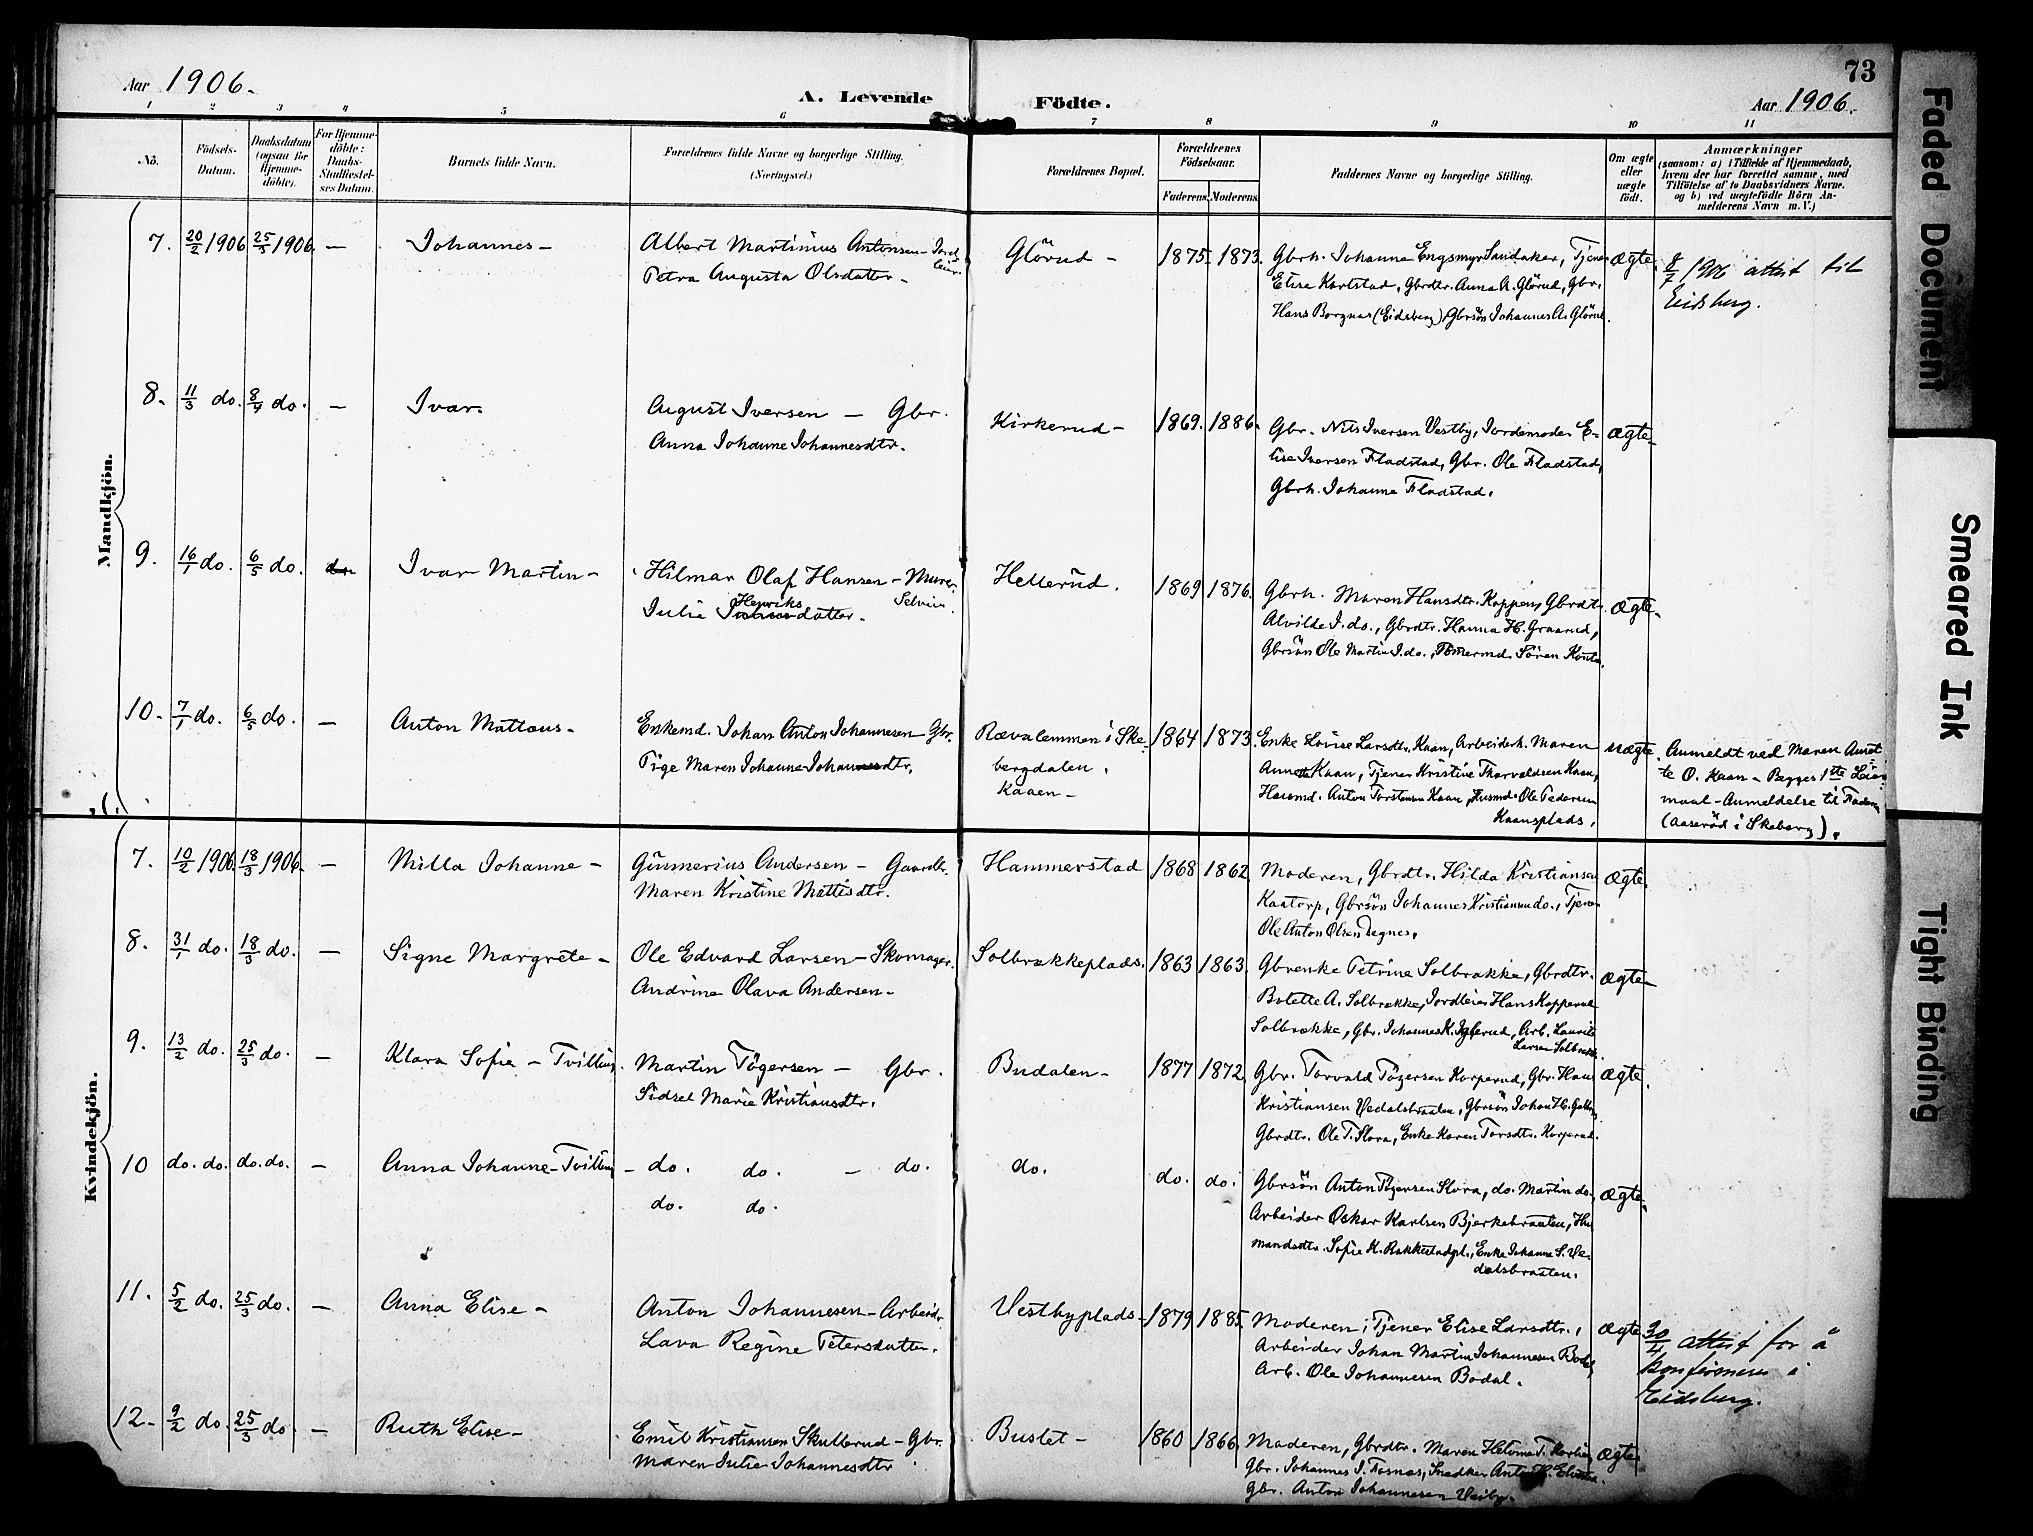 Aar 1906.
A. Levende Födte.
73
Aar 1906.
1 2 3 4 5 6 7 8 9 10 11
No.
Födsels-Datum.
Daabsdatum (ogsaa for Hjemme-döbte).
For Hjemme-döbte: Daabs-Stadfæstel-ses Datum.
Barnets fulde Navn.
Forældrenes fulde Navne og borgerlige Stilling. (Næringsvei.)
Forældrenes Bopæl.
Forældrenes Födselsaar.
Faderens. Moderens.
Faddernes Navne og borgerlige Stilling.
Om ægte eller uægte födt.
Anmærkninger
(saasom: a) i Tilfælde af Hjemmedaab,
hvem der har forrettet samme, med
Tilföielse af to Daabsvidners Navne.
og b) ved uægtefödte Börn An-
melderens Navn m. V.)
Mandkjön.
7. 20/2 1906 25/3 1906. — Johannes — Albert Martinius Antonsen — Jord-
leier.
Petra Augusta Olsdatter —
Glörud — 1875. 1873. Gbrh. Johanne Engsmyr Sandaker, Tjener
Elise Karlstad, Gbrdtr. Anna A. Glörud, Gbr.
Hans Borgnas (Eidsberg) Gbrsön Johannes A. Glörud.
ægte.
8/7 1906 attest til
Eidsberg.
8. 11/3 do. 8/4 do. — Ivar. August Iversen — Gbr.
Anna Johanne Johannesdtr.
Kirkerud — 1869. 1886. Gbr. Nils Iversen Vestby, Jordemoder E-
lise Iversen Fladstad, Gbr. Ole Fladstad,
Gbrh. Johanne Fladstad.
ægte —
9. 16/1 do. 6/5 do. do. Ivar Martin — Hilmar Olaf Hansen — Murer
Selveier.
Henriks
Julie datter.
Hellerud. 1869 1876. Gbrh. Maren Hansdtr. Koppen, Gbrdt.
Alvilde J. do., Gbrdtr. Hanna H. Graarud,
Gbrsön Ole Martin J. do., Tömermd. Sören
ægte.
10. 7/1 do. 6/5 do. — Anton Matteus — Enkemd. Johan Anton Johannesen Gbr.
Pige Maren Johanne Johannesdtr.
Rævalemmen i Ske-
bergdalen.
Kaaen —
1864 1873. Enke Lovise Larsdtr. Kaan, Arbeiderh. Maren
Annette Kaan, Tjener Kristine Thorvaldsen Kaan,
Husmd. Anton Torstensen Kaan, Husmd. Ole Pedersen
Kaansplads.
uægte.
Anmeldt ved Maren Anet-
te O. Kaan — Begges 1ste Leier-
maal — Anmeldelse til Faderen
(Aaseröd i Skeberg).
Kvindekjön.
7. 10/2 1906. 18/3 1906. — Milla Johanne — Günnerius Andersen — Gaardbr.
Maren Kristine Mattisdtr.
Hammerstad 1868 1862. Moderen, Gbrdtr. Hilda Kristiansen
Kaatorp, Gbrsön Johannes Kristiansen do., Tjener
Ole Anton Olsen Degnes.
ægte.
8. 31/1 do. 18/3 do. — Signe Margrete — Ole Edvard Larsen — Skomager.
Andrine Olava Andersen —
Solbrækkeplads. 1863 1863. Gbrenke Petrine Solbrække, Gbrdtr.
Bolette A. Solbrække, Jordleier Hans Kopperud
Solbrække, Gbr. Johannes K. Igletud, Arb. Laurits
Larsen Solbrække.
ægte —
9. 13/2 do. 25/3 do. — Klara Sofie — Tvilling. Martin Tögersen — Gbr.
Sidsel Marie Kristiansdtr.
Budalen — 1877 1872. Gbr. Torvald Tögersen Korperud, Gbr. Hans
Kristiansen Vedalsbraaten, Gbrsön Johan H.
Gbrdtr. Ole T. Slora, Enke Karen Torsdtr. Korperud.
ægte.
10 do. do. do. do. — Anna Johanne — Tvilling — do. do. — do.
do. do.
do. do. do. Gbrsön Anton Tögersen Slora, do. Martin do.,
Arbeider Oskar Karlsen Bjerkebraaten, Hus-
mandsdtr. Sofie K. Rakkestadpl., Enke Johanne S. Ve-
dalsbraaten.
ægte.
11. 5/2 do. 25/3 do. — Anna Elise — Anton Johannesen — Arbeidr.
Lava Regine Petersdatter.
Vestbyplads — 1879 1885. Moderen, Tjener Elise Larsdtr.,
Arbeider Johan Martin Johannesen Bodal,
Arb. Ole Johannesen Bodal.
ægte
30/4 attest for å
konfirmeres i
Eidsberg.
12. 9/2 do. 25/3 do. — Ruth Elise — Emil Kristiansen Skullerud — Gbr.
Maren Julie Johannesdtr
Buslet — 1860 1866. Moderen, Gbrdtr. Maren
Gbr. Johannes J. Fosnas, Snedker
Gbr. Anton Johannesen Vesby.
ægte.
Faded Document
Smeared Ink
Tight Binding